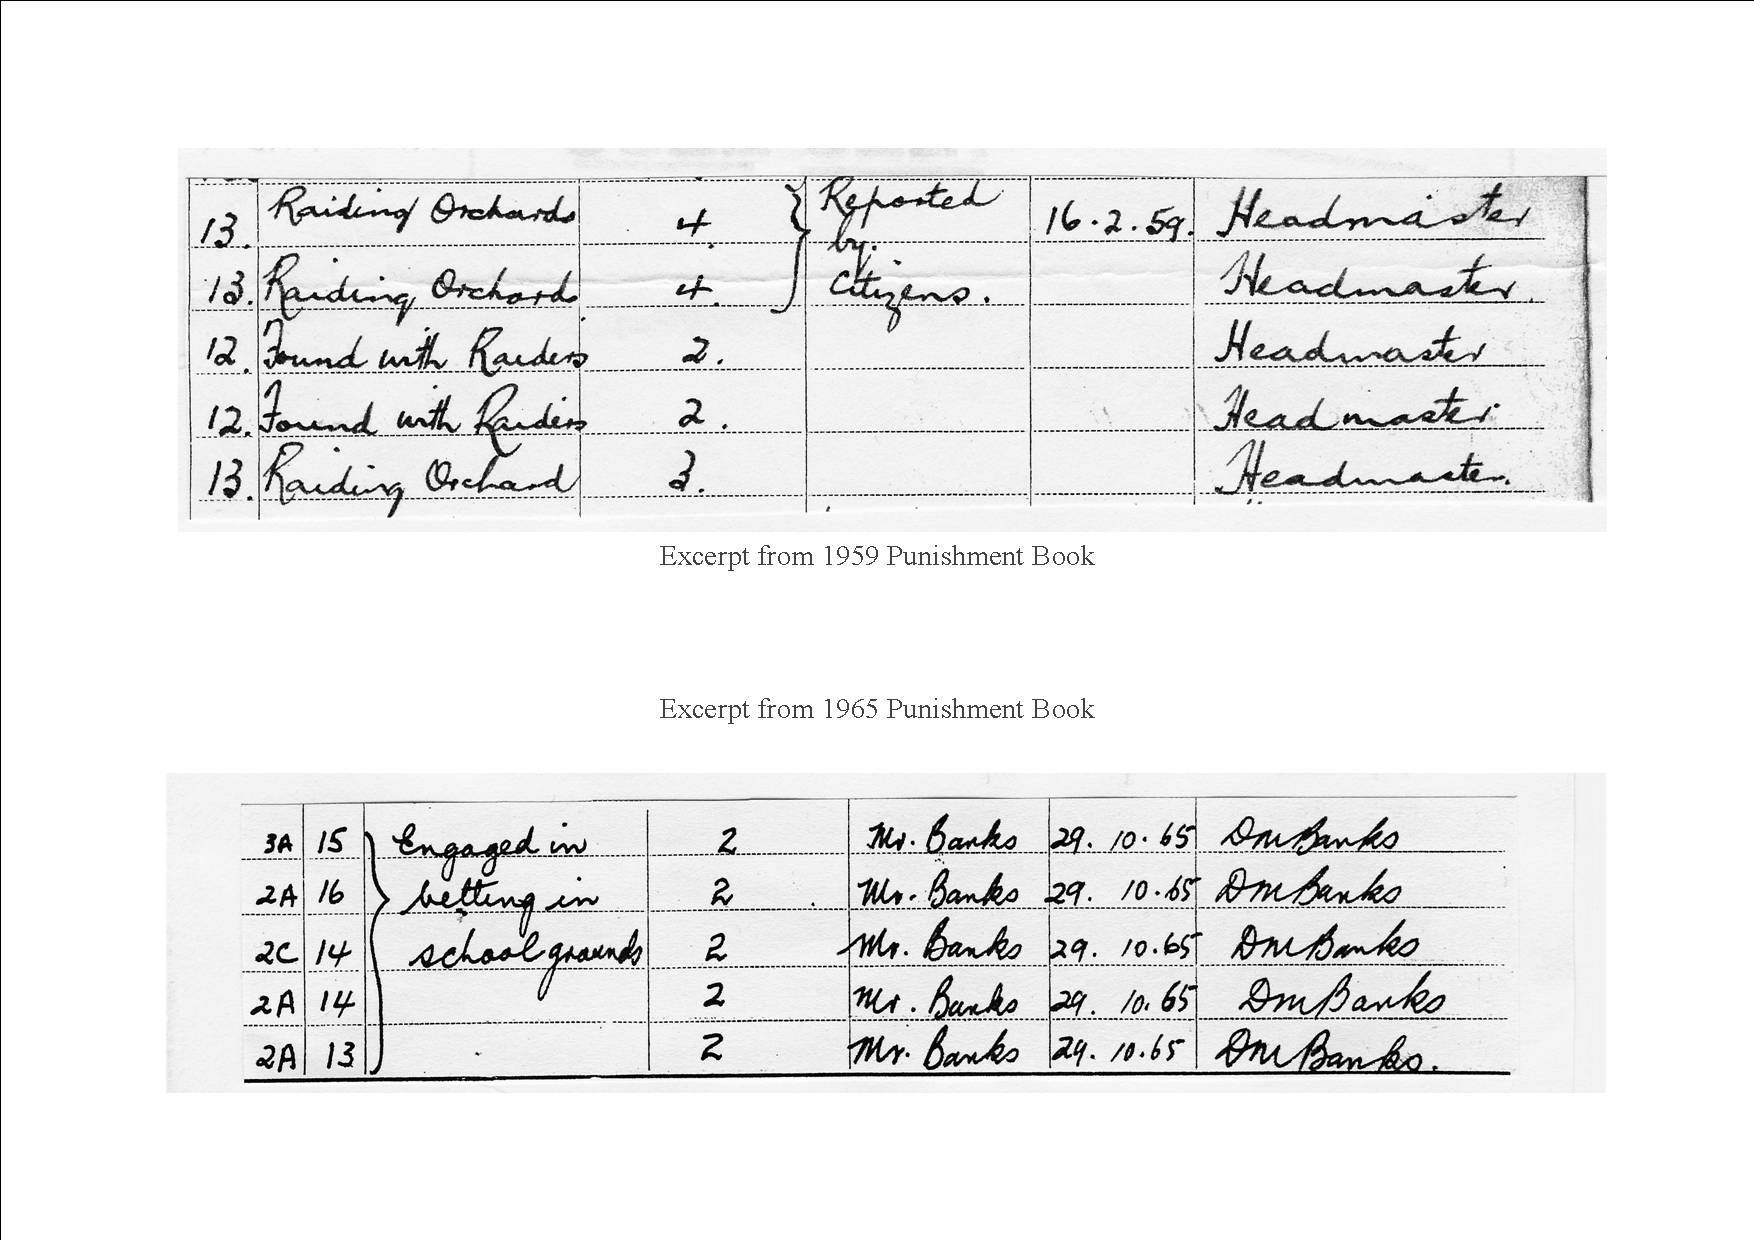 13. Raiding Orchards 4. } Reported by. 16.2.59. Headmaster
13. Raiding Orchards 4. Citizens. Headmaster.
12. Found with Raiders 2. Headmaster
12. Found with Raiders 2. Headmaster
13. Raiding Orchard 3. Headmaster.
Excerpt from 1959 Punishment Book
Excerpt from 1965 Punishment Book
3A 15 } Engaged in 2 Mr. Banks 29. 10. 65 DMBanks
2A 16 betting in 2 Mr. Banks 29. 10. 65 DMBanks
2C 14 school grounds 2 Mr. Banks 29. 10. 65 DMBanks
2A 14 2 Mr. Banks 29. 10. 65 DMBanks
2A 13 2 Mr. Banks 29. 10. 65 DMBanks.